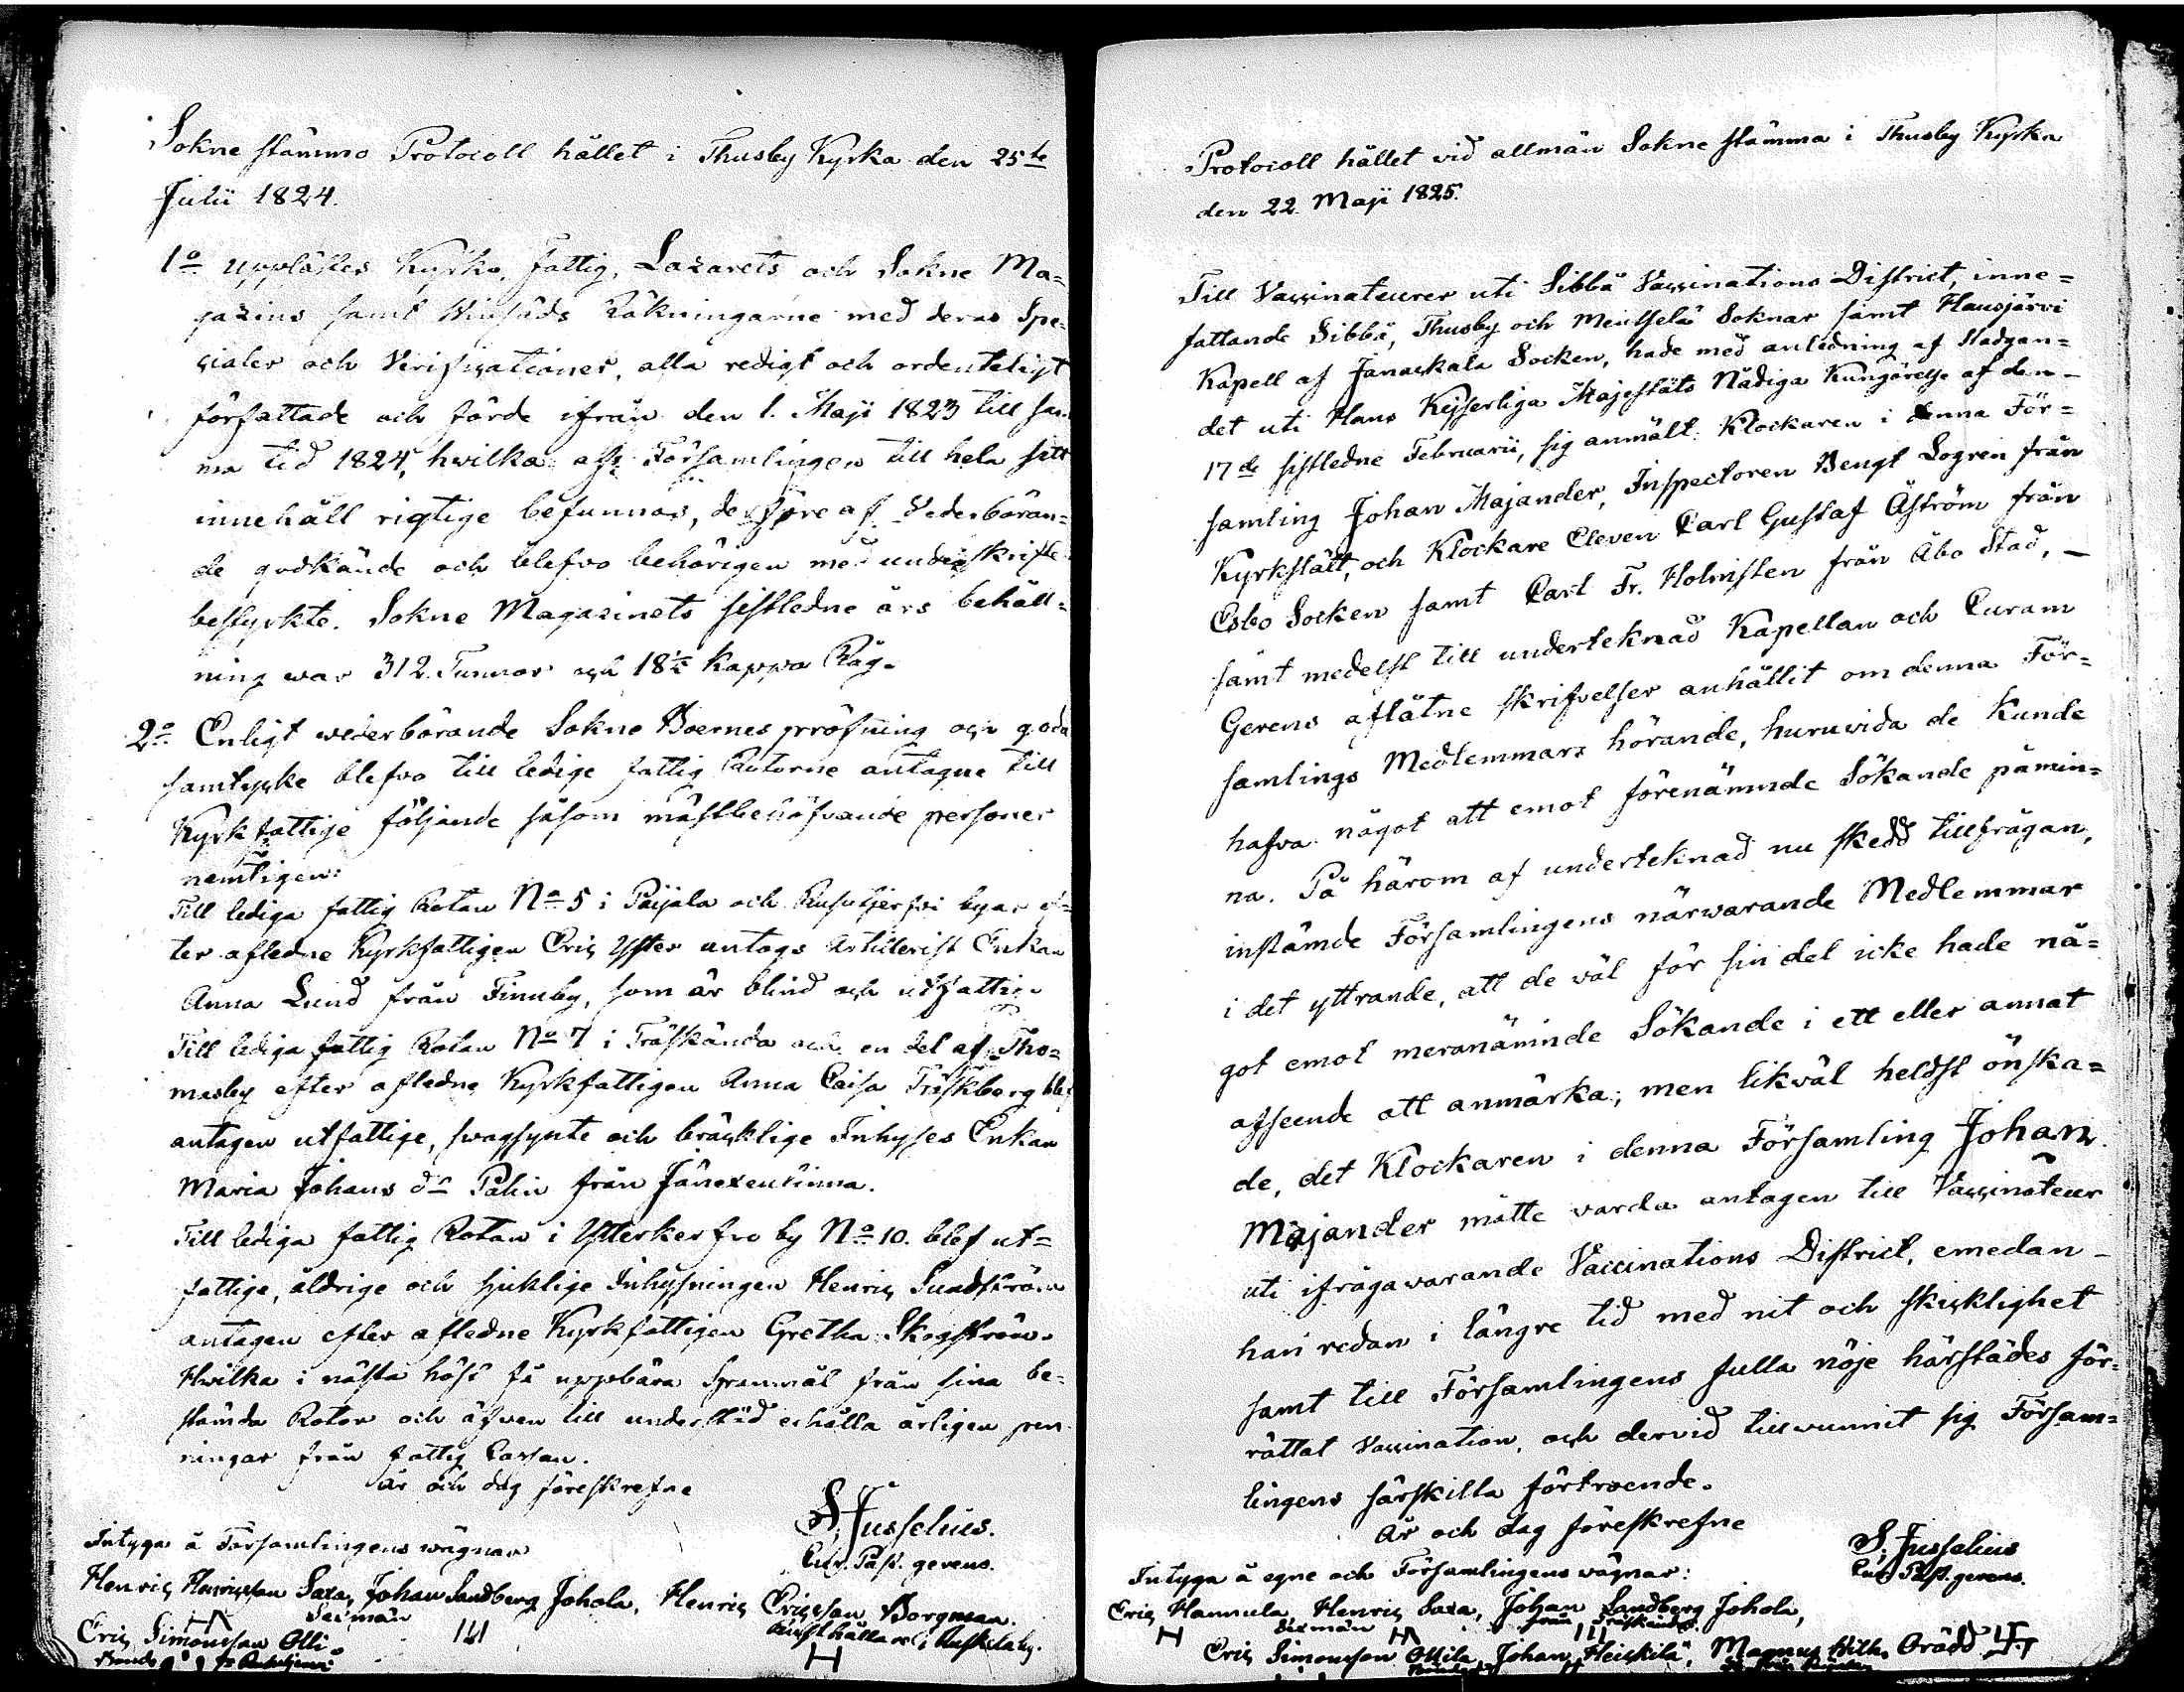 Sokne stämmo Protocoll hållet i Thusby Kyrka den 25te
Julii 1824.
1o Upplästes Kyrko, Fattig, Lazarets och Sokne Ma=
gazins samt Räkningarne med deras Spe=
cialer och Verificationer, alla redigt och ordenteligt
författade och förde ifrån den 1. Maji 1823 till sam
ma tid 1824, hvilka af Församlingen till hela sitt
innehåll rigtige befunnos, derföre af Vederböran=
de godkände och blefvo behörigen med underskrifte
bestyrkte. Sokne Magazinets sistledne års behåll=
ning war 312 Tunnor och 18½ kappa Råg.
2o Enligt wederbörande Sokne Boernes pröfning och goda
samtycke blefvo till ledige fattig Rotorne antagne till
Kyrkfattige följande såsom mästbehöfvande personer
nemligen:
Till lediga fattig Rotan No 5 i Paijala och Rusutjerfvi byar ef=
ter afledne Kyrkfattigen Eric Yster antogs Artillerist Enkan
Anna Lund från Finnby, som är blind och utfattig.
Till lediga fattig Rotan No 7 i Träskända och en del af Tho=
masby efter afledne Kyrkfattigen Anna Caisa Träskberg blef
antagen utfattige, swagsynte och bräcklige Inhyses Enkan
Maria Johans dr Palin från Jänexenlinna.
Till lediga fattig Rotan i Ytterkerfvo by No 10. blef ut=
fattige, åldrige och sjuklige Inhysningen Henric Sundström
antagen efter afledne Kyrkfattigen Gretha Skogström.
Hwilka i nästa höst få uppbära Spanmål från sina be=
stämda Rotor och äfven till understöd erhålla årligen pen
ningar från fattig Cassan.
År och dag föreskrefne
S. Jusselius.
Cur. Past. gerens.
Intyga å Församlingens wägnar
Henric Henricsson Saxa, Johan Sandberg Johola, Henric Ericsson Borgman.
Sexmän
Eric Simonsson Olli.
Protocoll hållet vid allmän Sokne stämma i Thusby Kyrka
den 22. Maji 1825.
Till Vaccinateurer uti Sibbå Vaccinations District, inne=
fattande Sibbå, Thusby och Mentselä Soknar samt Hausjärvi
Kapell af Janackala Socken, hade med anledning af Stadgan=
det uti Hans Kejserliga Majestäts Nådiga Kungörelse af den
17de sistledne Februarii, sig anmält: Klockaren i denna För=
samling Johan Majander, Inspectoren Bengt Logren från
Kyrkslätt, och Klockare Eleven Carl Gustaf Åström från
Esbo Socken samt Carl Fr. Holmsten från Åbo Stad,
samt medelst till underteknad Kapellan och Curam
Gerens aflåtne skrifvelser anhållit om denna För=
samlings Medlemmars hörande, huruvida de kunde
hafva något att emot förenämnde Sökande påmin=
na. På härom af underteknad nu skedd tillfrågan,
instämde Församlingens närwarande Medlemmar
i det yttrande, att de väl för sin del icke hade nå=
got emot meranämnde Sökande i ett eller annat
afseende att anmärka; men likväl heldst önska=
de, det Klockaren i denna Församling Johan
Majander måtte varda antagen till Vaccinateur
uti ifrågavarande Vaccinations District, emedan
han redan i längre tid med nit och skicklighet
samt till Församlingens fulla nöje härstädes för=
rättat Vaccination, och dervid tillvunnit sig Försam=
lingens särskilla förtroende.
År och dag föreskrefne
S. Jusselius
Cur. Past. gerens.
Intyga å egne och Församlingens vägnar:
Eric Hannula, Henric Saxa, Johan Sandberg Johola,
Sexmän från Träskända
Eric Simonsson Ollila, Johan Heickilä, Magnus Wilh. Orädd